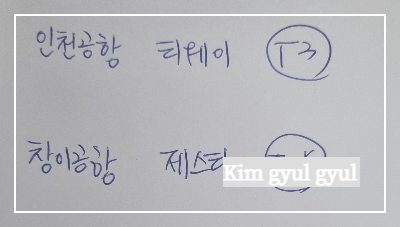 인천공항 티웨이 T3
창이공항 제스타
Kim gyul gyul